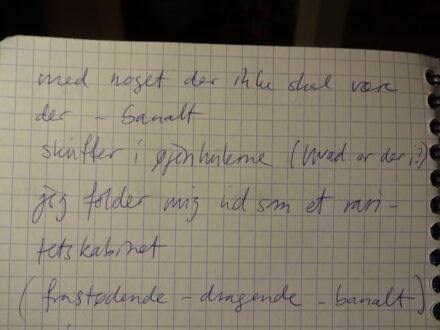 med noget der ikke skal være
der - banalt
skuffer i øjenhulerne (hvad er der i?)
jeg folder mig ud som et rari-
tetskabinet
(frastødende - dragende - banalt)